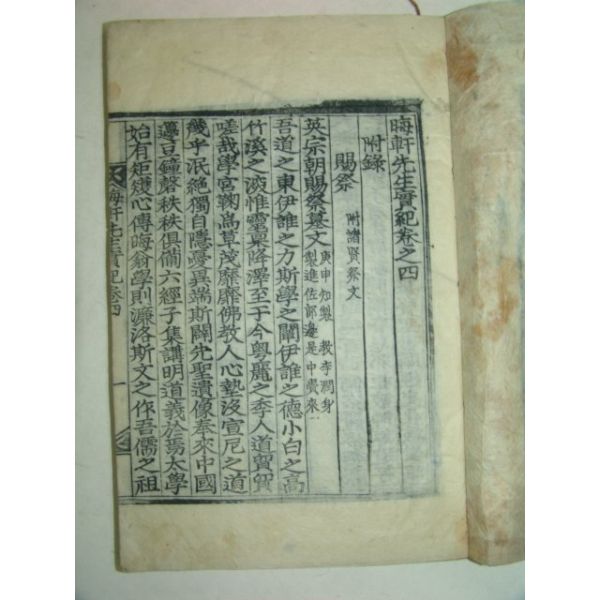 晦軒先生實紀卷之四
附錄
賜祭 附諸賢祭文
英宗朝賜祭墓文 庚申知製 教李潤身
製進佐郎邊是中賫來
吾道之東伊誰之力斯學之闡伊誰之德小白之高
竹溪之淡惟靈稟降澤至于今粤麗之季人道貿貿
嗟哉學宮鞠爲草茂靡靡佛教人心墊没宣尼之道
幾乎泯絶獨自隱憂異端斯闢先聖遺像奉來中國
籩豆鐘磬秩秩俱備六經子集講明道義於焉太學
始有矩矱心傳晦翁學則濂洛斯文之作吾儒之祖
晦軒先生實紀卷四
一